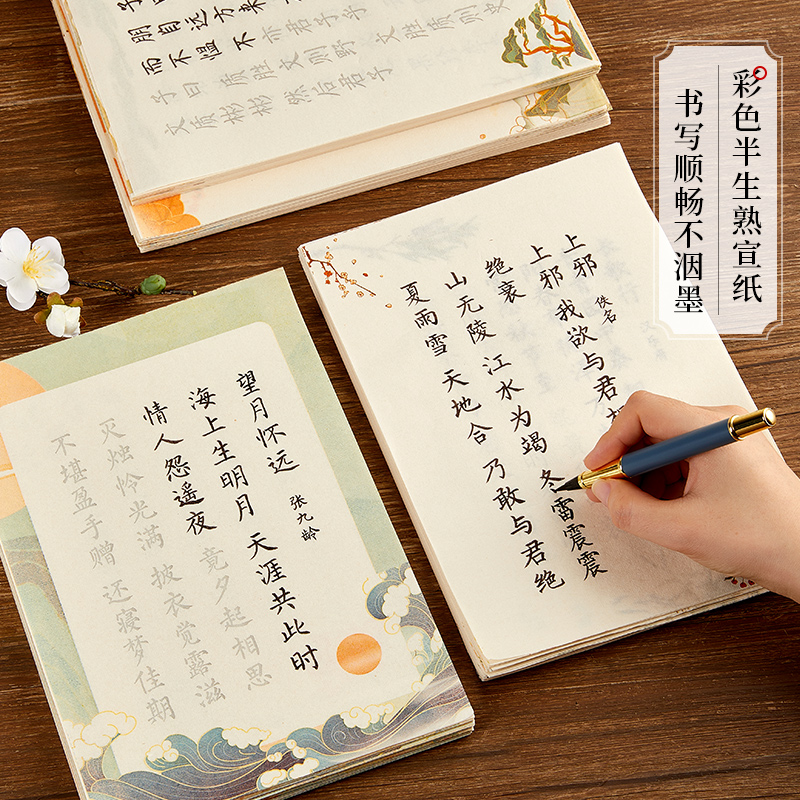 彩色半生熟宣纸
书写顺畅不洇墨
朋自远方来
而不愠 不亦君子乎
子曰 质胜文则野 文胜质则史
文质彬彬 然后君子
上邪 佚名
上邪 我欲与君
绝衰
山无陵 江水为竭 冬雷震震
夏雨雪 天地合 乃敢与君绝
望月怀远 张九龄
海上生明月 天涯共此时
情人怨遥夜 竟夕起相思
灭烛怜光满 披衣觉露滋
不堪盈手赠 还寝梦佳期